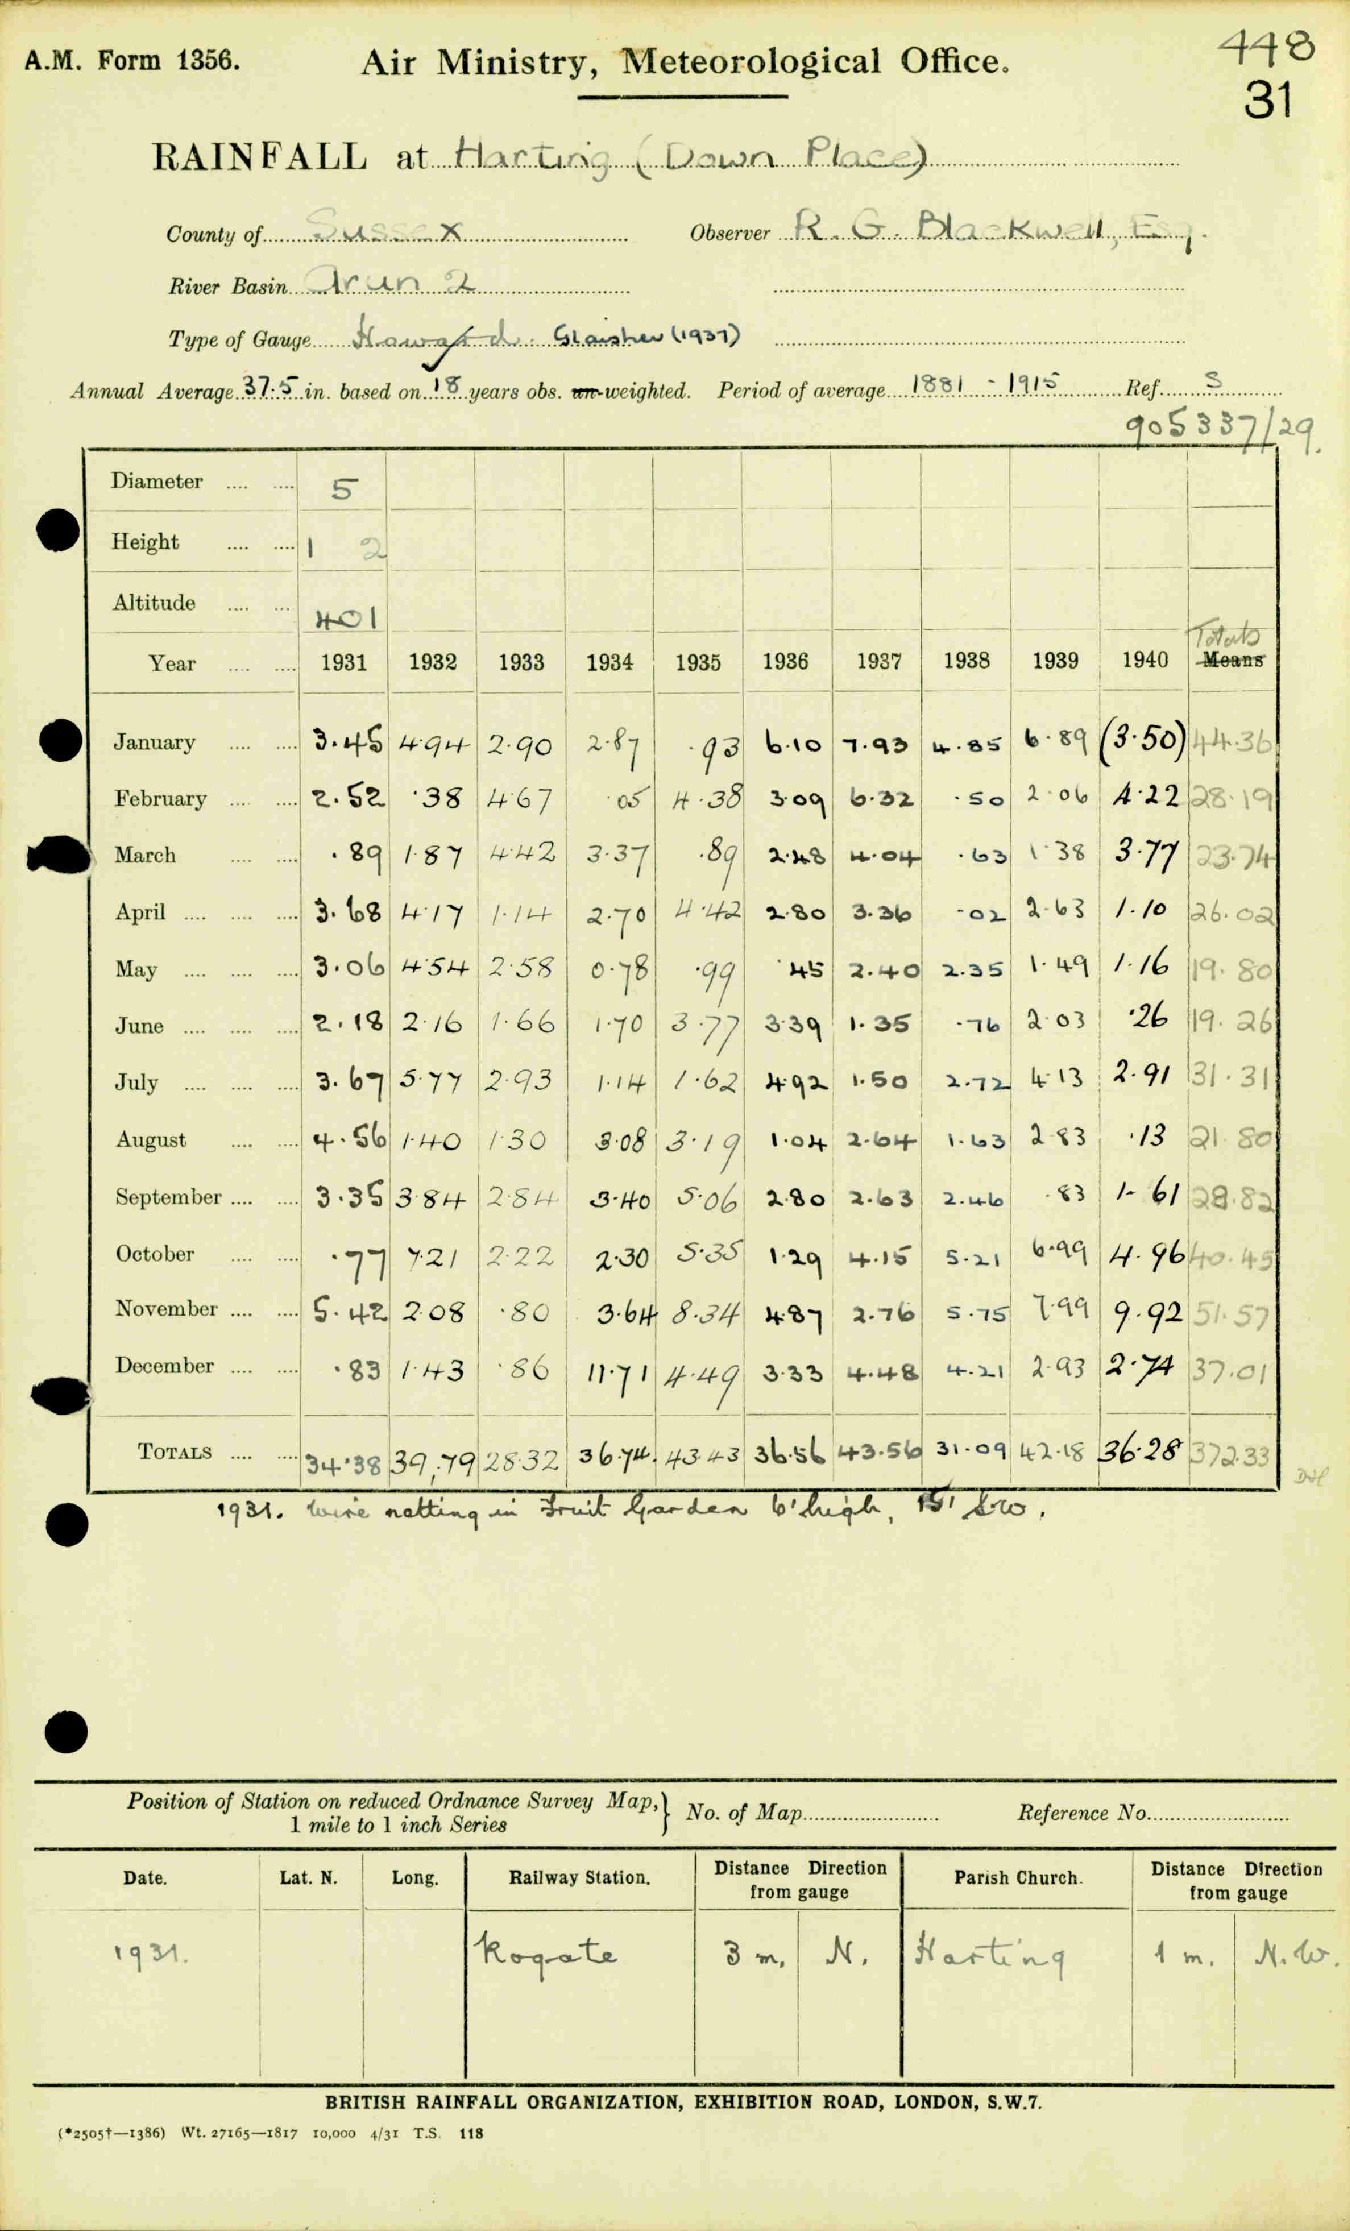 A.M. Form 1356.
Air Ministry, Meteorological Office.
448
31
RAINFALL at Harting (Down Place)
County of Sussex Observer R. G. Blackwell, Esq.
River Basin Arun 2
Type of Gauge Howard. Glaisher (1937)
Annual Average 37.5 in. based on 18 years obs. un-weighted. Period of average 1881 - 1915 Ref. S
905337/29.
Diameter 5
Height 1 2
Altitude 401
Totals
Year 1931 1932 1933 1934 1935 1936 1937 1938 1939 1940 Means
January 3.45 4.94 2.90 2.87 .93 6.10 7.93 4.85 6.89 (3.50) 44.36
February 2.52 .38 4.67 .05 4.38 3.09 6.32 .50 2.06 4.22 28.19
March .89 1.87 4.42 3.37 .89 2.48 4.04 .63 1.38 3.77 23.74
April 3.68 4.17 1.14 2.70 4.42 2.80 3.36 .02 2.63 1.10 26.02
May 3.06 4.54 2.58 0.78 .99 .45 2.40 2.35 1.49 1.16 19.80
June 2.18 2.16 1.66 1.70 3.77 3.39 1.35 .76 2.03 .26 19.26
July 3.67 5.77 2.93 1.14 1.62 4.92 1.50 2.72 4.13 2.91 31.31
August 4.56 1.40 1.30 3.08 3.19 1.04 2.64 1.63 2.83 .13 21.80
September 3.35 3.84 2.84 3.40 5.06 2.80 2.63 2.46 .83 1.61 28.82
October .77 7.21 2.22 2.30 5.35 1.29 4.15 5.21 6.99 4.96 40.45
November 5.42 2.08 .80 3.64 8.34 4.87 2.76 5.75 7.99 9.92 51.57
December .83 1.43 .86 11.71 4.49 3.33 4.48 4.21 2.93 2.74 37.01
TOTALS 34.38 39.79 28.32 36.74 43.43 36.56 43.56 31.09 42.18 36.28 372.33
1931. Wire netting in Fruit Garden 6' high, 15' SW.
Position of Station on reduced Ordnance Survey Map, 1 mile to 1 inch Series } No. of Map Reference No.
Date. Lat. N. Long. Railway Station. Distance Direction from gauge Parish Church. Distance Direction from gauge
1931. Rogate 3 m. N. Harting 1 m. N.W.
BRITISH RAINFALL ORGANIZATION, EXHIBITION ROAD, LONDON, S.W.7.
(*2505†—1386) Wt. 27165—1817 10,000 4/31 T.S. 118